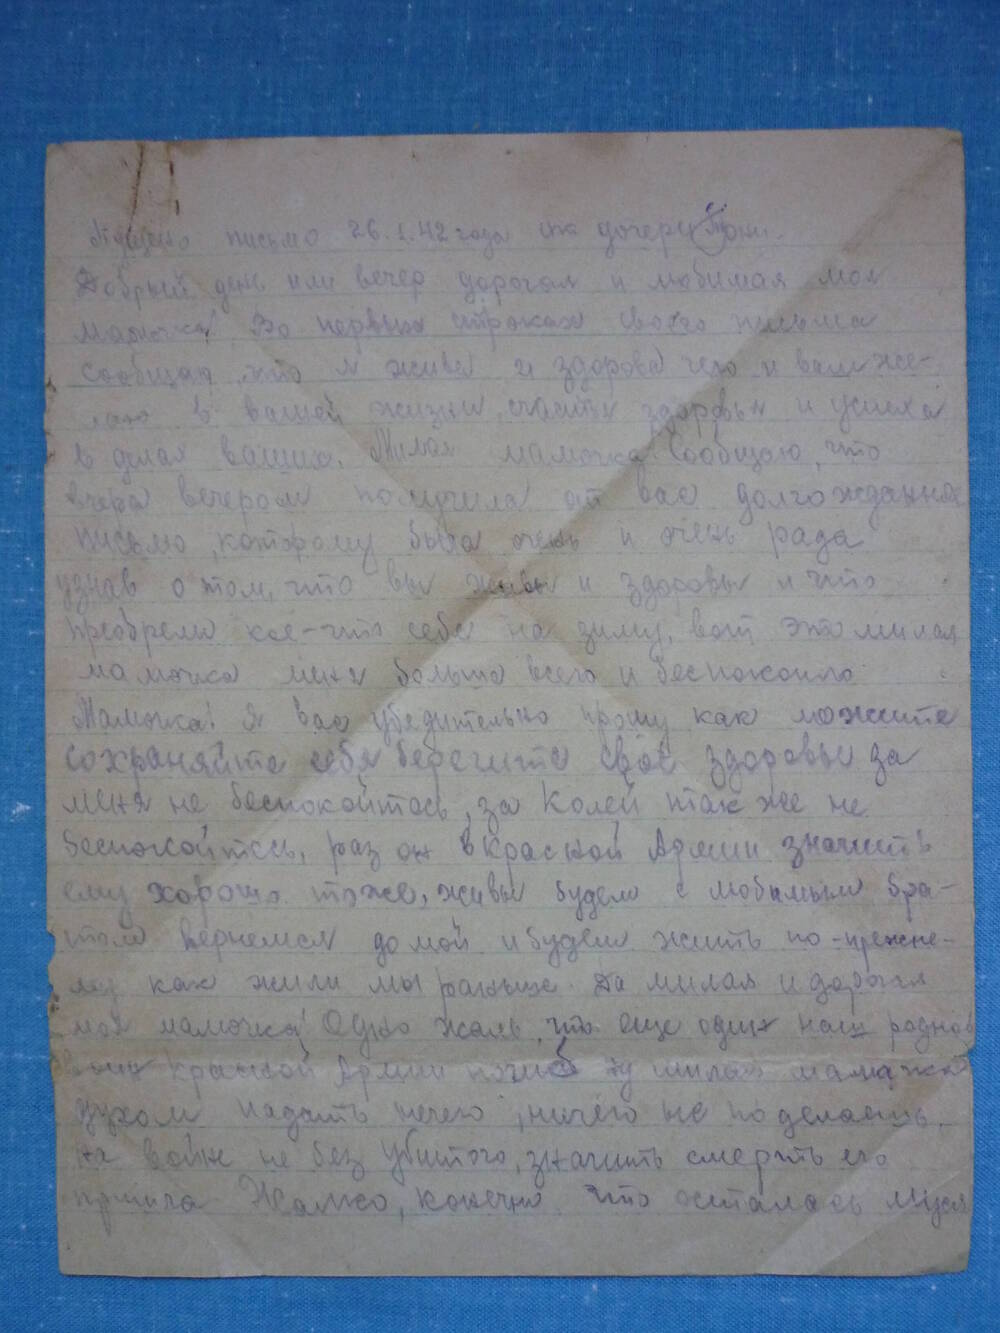 Пущено письмо 26.I.42 года от дочери Тони.
Добрый день или вечер дорогая и любимая моя
мамочка! Во первых строках своего письма
сообщаю, что я жива и здорова чего и вам же-
лаю в вашей жизни, счастья здоровья и успеха
в делах ваших. Милая мамочка! Сообщаю, что
вчера вечером получила от вас долгожданное
письмо, которому была очень и очень рада
узнав о том, что вы живы и здоровы и что
преобрели кое-что себе на зиму, вот это милая
мамочка меня больше всего и беспокоило
Мамочка! Я вас убедительно прошу как можите
сохраняйте себя берегите своё здоровье за
меня не беспокойтесь, за Колей так же не
беспокойтесь, раз он в Красной Армии значить
ему хорошо тоже, живы будем с любимым бра-
том вернемся домой и будем жить по-прежне-
му как жили мы раньше. Да милая и дорогая
моя мамочка! Одно жаль, что еще один наш родной
воин Красной Армии погиб ну милая мамочка
духом падать нечего, ничего не поделаешь,
на войне не без убитого, значить смерть его
пришла Жалко, конечно что осталась Муся